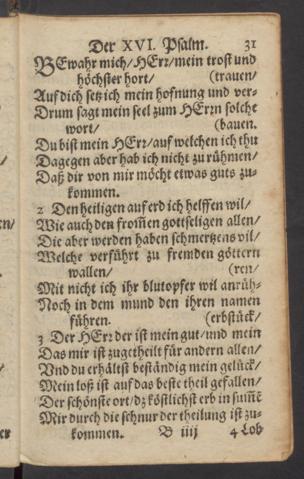 Der XVI. Psalm. 31
BEwahr mich/ HErr/ mein trost und
höchster hort/ (trauen/
Auf dich setz ich mein hofnung und ver-
Drum sagt mein seel zum HErrn solche
wort/ (bauen.
Du bist mein HErr/ auf welchen ich thu
Dagegen aber hab ich nicht zu rühmen/
Daß dir von mir möcht etwas guts zu-
kommen.
2 Den heiligen auf erd ich helffen wil/
Wie auch den from̃en gottseligen allen/
Die aber werden haben schmertzens vil/
Welche verführt zu fremden göttern
wallen/ (ren/
Mit nicht ich ihr blutopfer wil anrüh-
Noch in dem mund den ihren namen
führen. (erbstück/
3 Der HErr der ist mein gut/ und mein
Das mir ist zugetheilt für andern allen/
Vnd du erhältst beständig mein gelück/
Mein loß ist auf das beste theil gefallen/
Der schönste ort/ dz köstlichst erb in sum̃ẽ
Mir durch die schnur der theilung ist zu-
kommen. B iiij 4 Lob